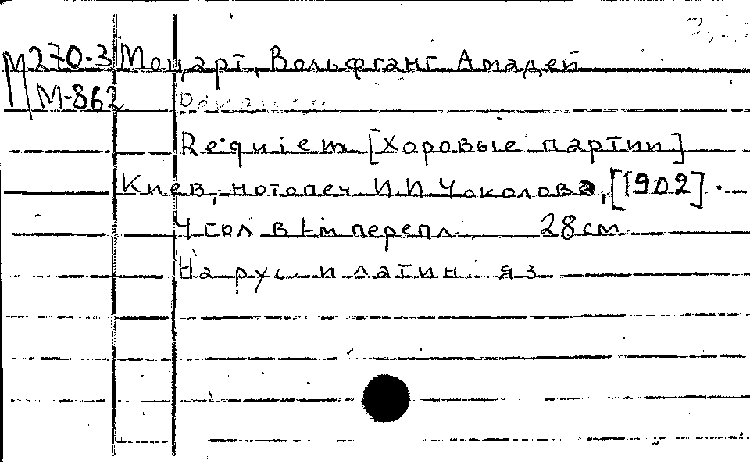 М270-3 Моцарт, Вольфганг Амадей
М-862
Requiem [Хоровые партии]
Киев, нотопеч И.И Чоколова, [1902].
4 гол в 1м перепл. 28 см
На рус. и латин. яз